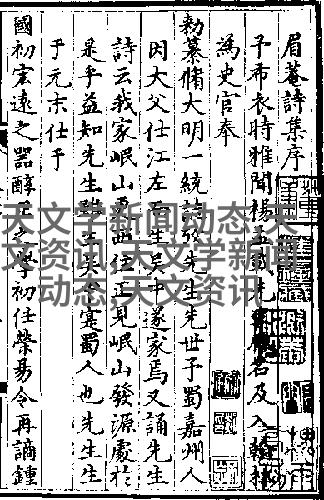 眉菴詩集序
予布衣時雅聞楊孟載先名及入翰林
為史官奉
勑纂脩大明一統誌先生先世予蜀嘉州人
因大父仕江左生吳中遂家焉又誦先生
詩云我家岷山西住正見岷山發源處於
是乎益知先生雖吳寔蜀人也先生生
于元末仕于
國初宏遠之器醇正之學初任滎昜令再謫鍾
天文学新闻动态:天
文资讯:天文学新闻
动态:天文资讯